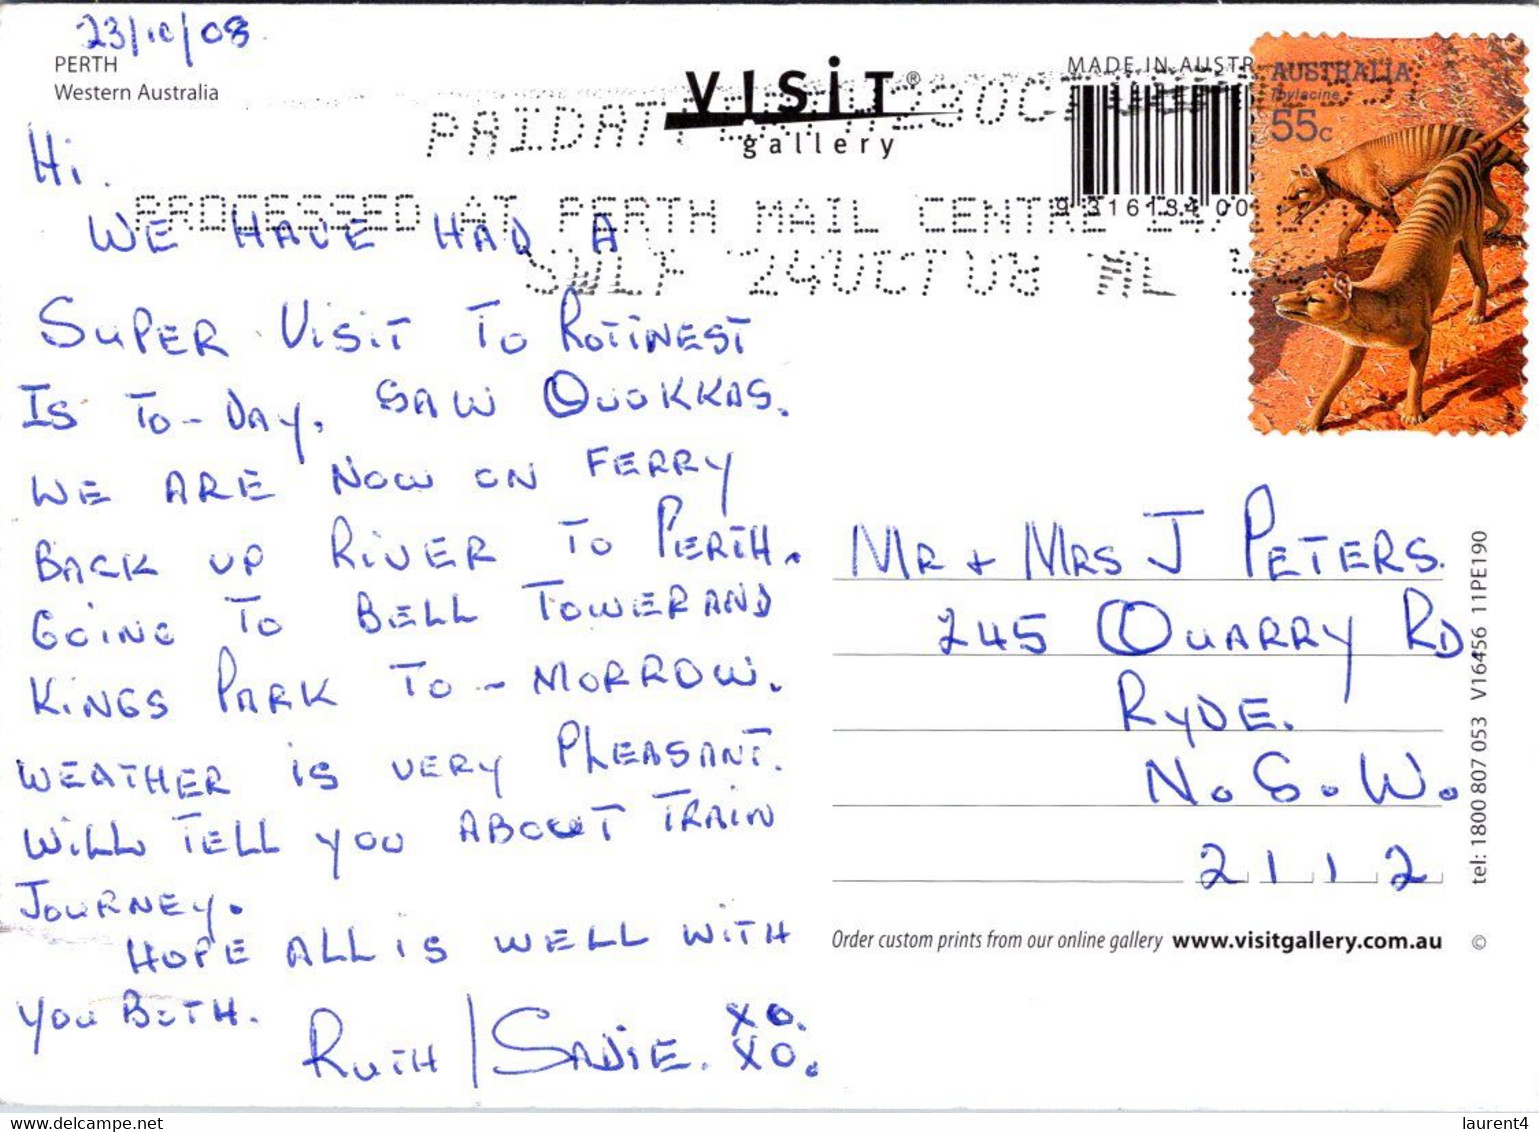 23/10/08
PERTH
Western Australia
VISiT®
gallery
MADE IN AUSTR
AUSTRALIA
Thylacine
55c
PAIDAT
23OCT
PROCESSED AT PERTH MAIL CENTRE
24OCT08
9 316134 00
Hi.
WE HAVE HAD A
SUPER VISIT TO ROTINEST
IS TO-DAY, SAW QUOKKAS.
WE ARE NOW ON FERRY
BACK UP RIVER TO PERTH.
GOING TO BELL TOWER AND
KINGS PARK TO-MORROW.
WEATHER IS VERY PLEASANT.
WILL TELL YOU ABOUT TRAIN
JOURNEY.
HOPE ALL IS WELL WITH
YOU BOTH.
RUTH/SADIE. XO.
XO.
MR + MRS J PETERS.
245 QUARRY RD.
RYDE.
N.S.W.
2112
Order custom prints from our online gallery www.visitgallery.com.au ©
tel: 1800 807 053 V16456 11PE190
www.delcampe.net
laurent4